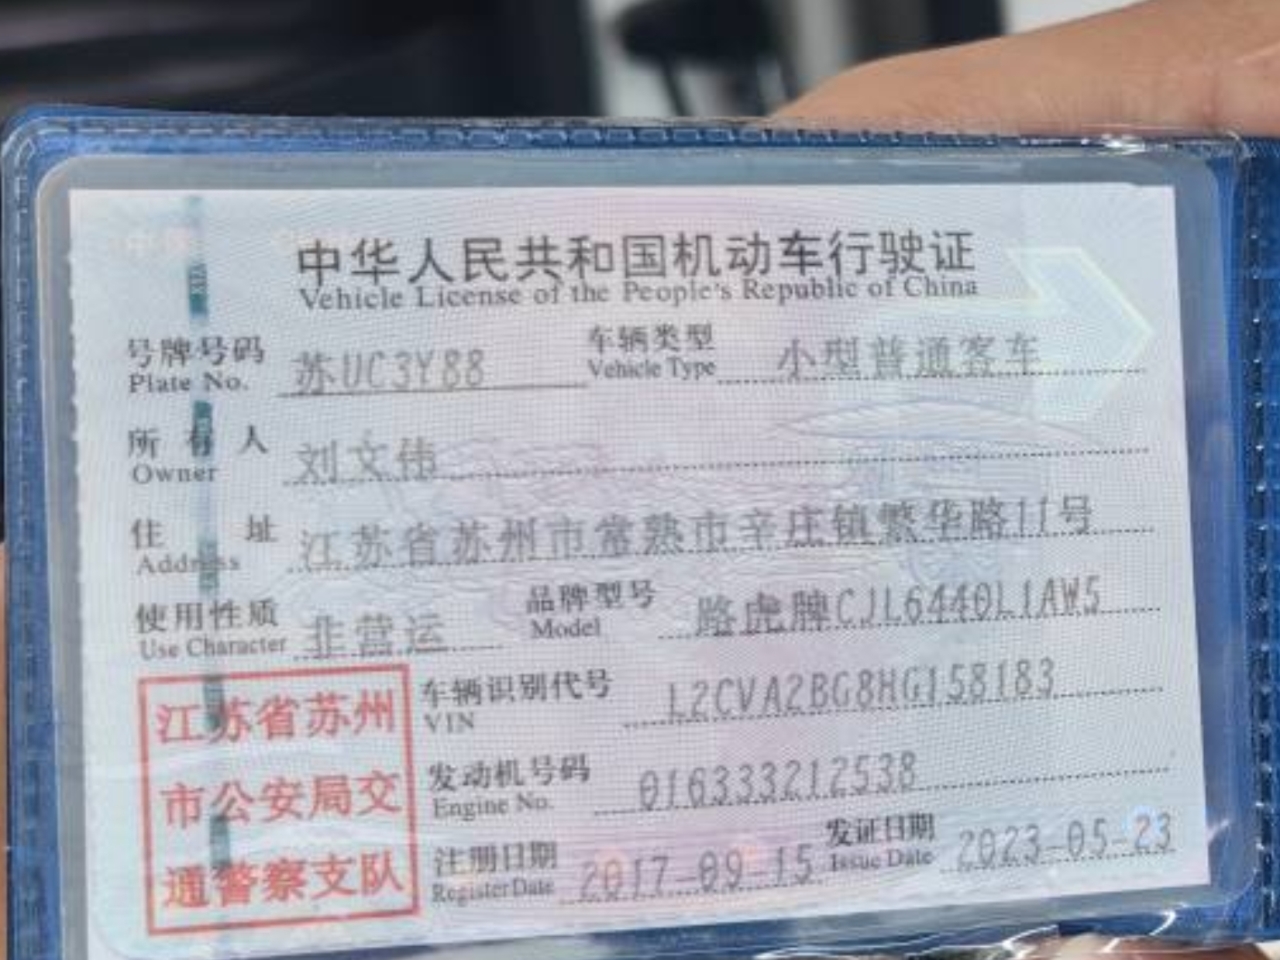 中华人民共和国机动车行驶证
Vehicle License of the People's Republic of China
号牌号码 苏UC3Y88 车辆类型 小型普通客车
Plate No. Vehicle Type
所有人 刘文伟
Owner
住址 江苏省苏州市常熟市辛庄镇繁华路11号
Address
使用性质 非营运 品牌型号 路虎牌CJL6440L1AW5
Use Character Model
江苏省苏州
市公安局交
通警察支队
车辆识别代号 L2CVA2BG8HG158183
VIN
发动机号码 016333212538
Engine No.
注册日期 2017-09-15 发证日期 2023-05-23
Register Date Issue Date